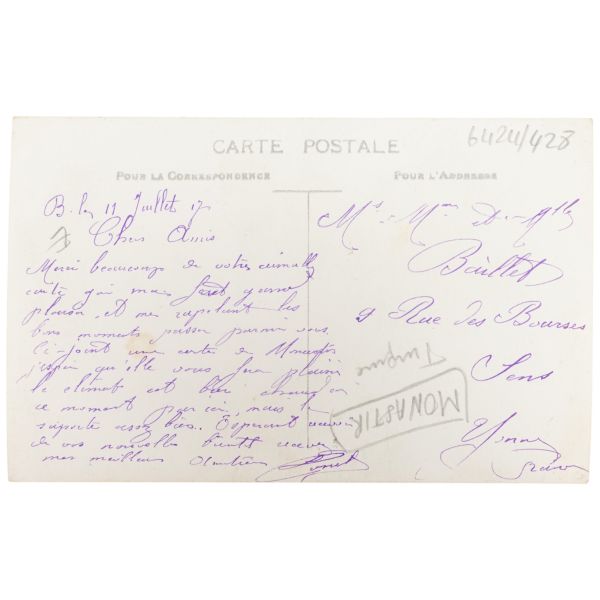 6424/428
CARTE POSTALE
POUR LA CORRESPONDENCE
POUR L'ADDRESSE
B. le 11 Juillet 17
Chers Amis
Merci beaucoup de votre aimable
carte qui m'a fait grand
plaisir et me rapelant les
bons moments passer parmi vous
Ci-joint une carte de Monastir
j'espere qu'elle vous fera plaisir
le climat est bien chaud en
ce moment par ici, mais le
suporte assez bien. Esperant recevoir
de vos nouvelles bientôt recevez
mes meilleurs
Mr Mme et Mlle
Baillet
9 Rue des Bourses
Sens
Yonne
MONASTIR
Turquie